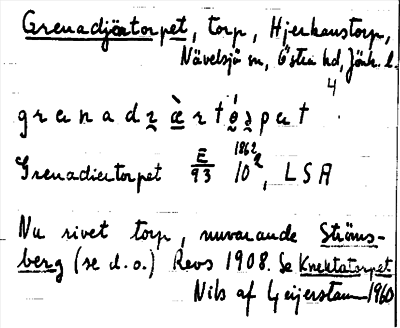 Grenadjörtorpet, torp, Hjerkanstorp,
Nävelsjö sn, Östra hd, Jönk. l.
4
grenadʒ̠æ̠̀rtó̠ʒ̠pet
Grenadiertorpet E/93 1862 10², LSA
Nu rivet torp, nuvarande Ströms-
berg (se d.o.) Revs 1908. Se Knektatorpet
Nils af Geijerstam 1960